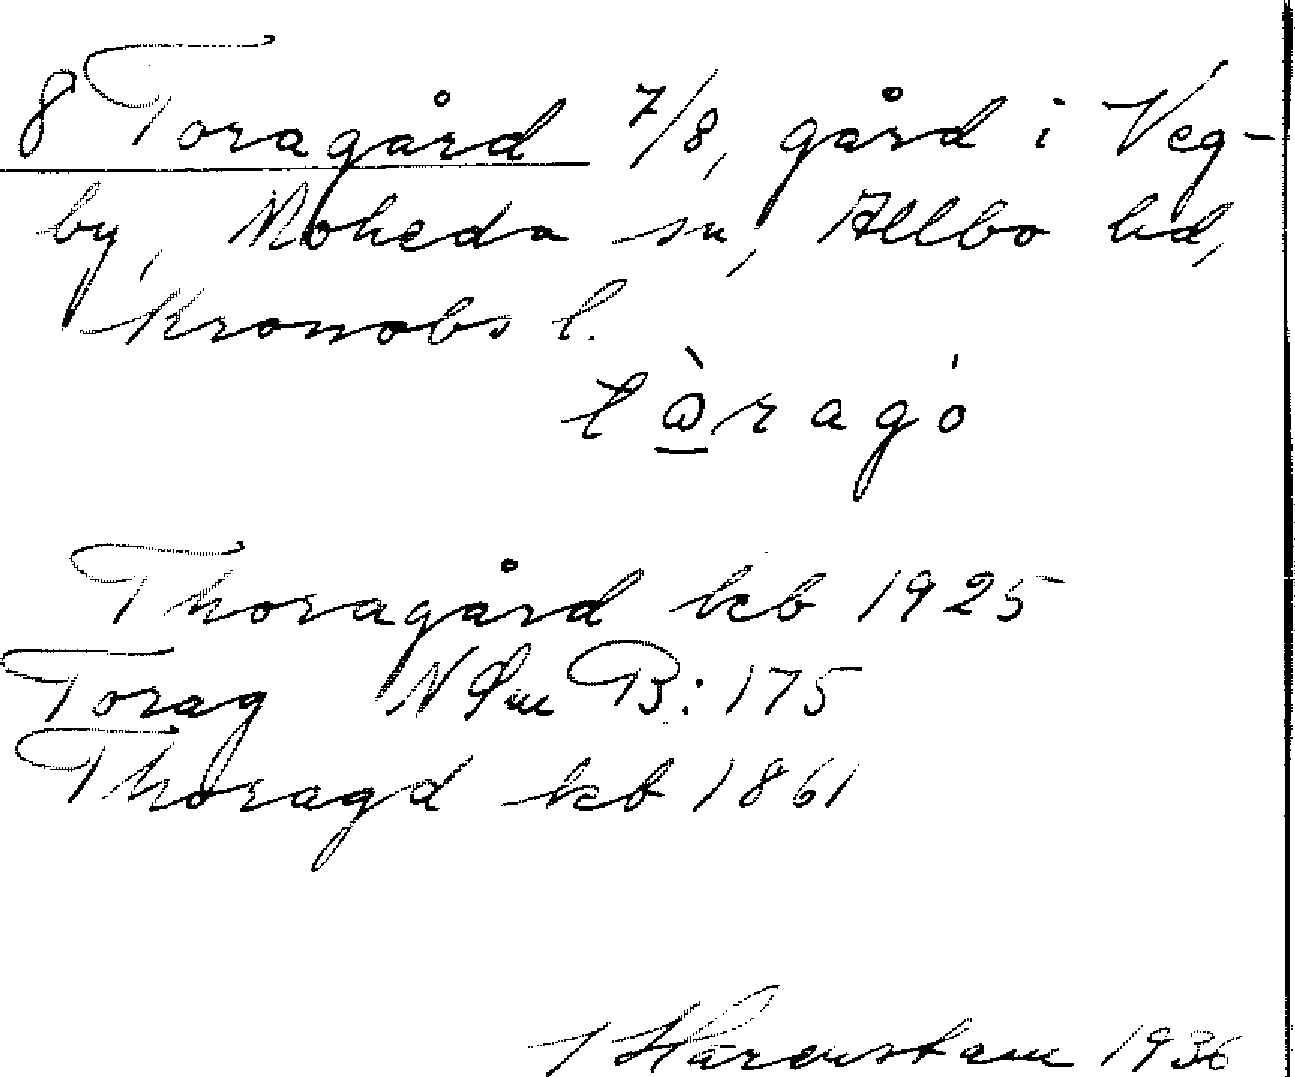 8 Toragård 7/8, gård i Veg-
by, Moheda sn, Allbo hd,
Kronobs l.
Thoragård kb 1925
Torag N Sm B:175
Thoragd kb 1861
Härenstam 1936